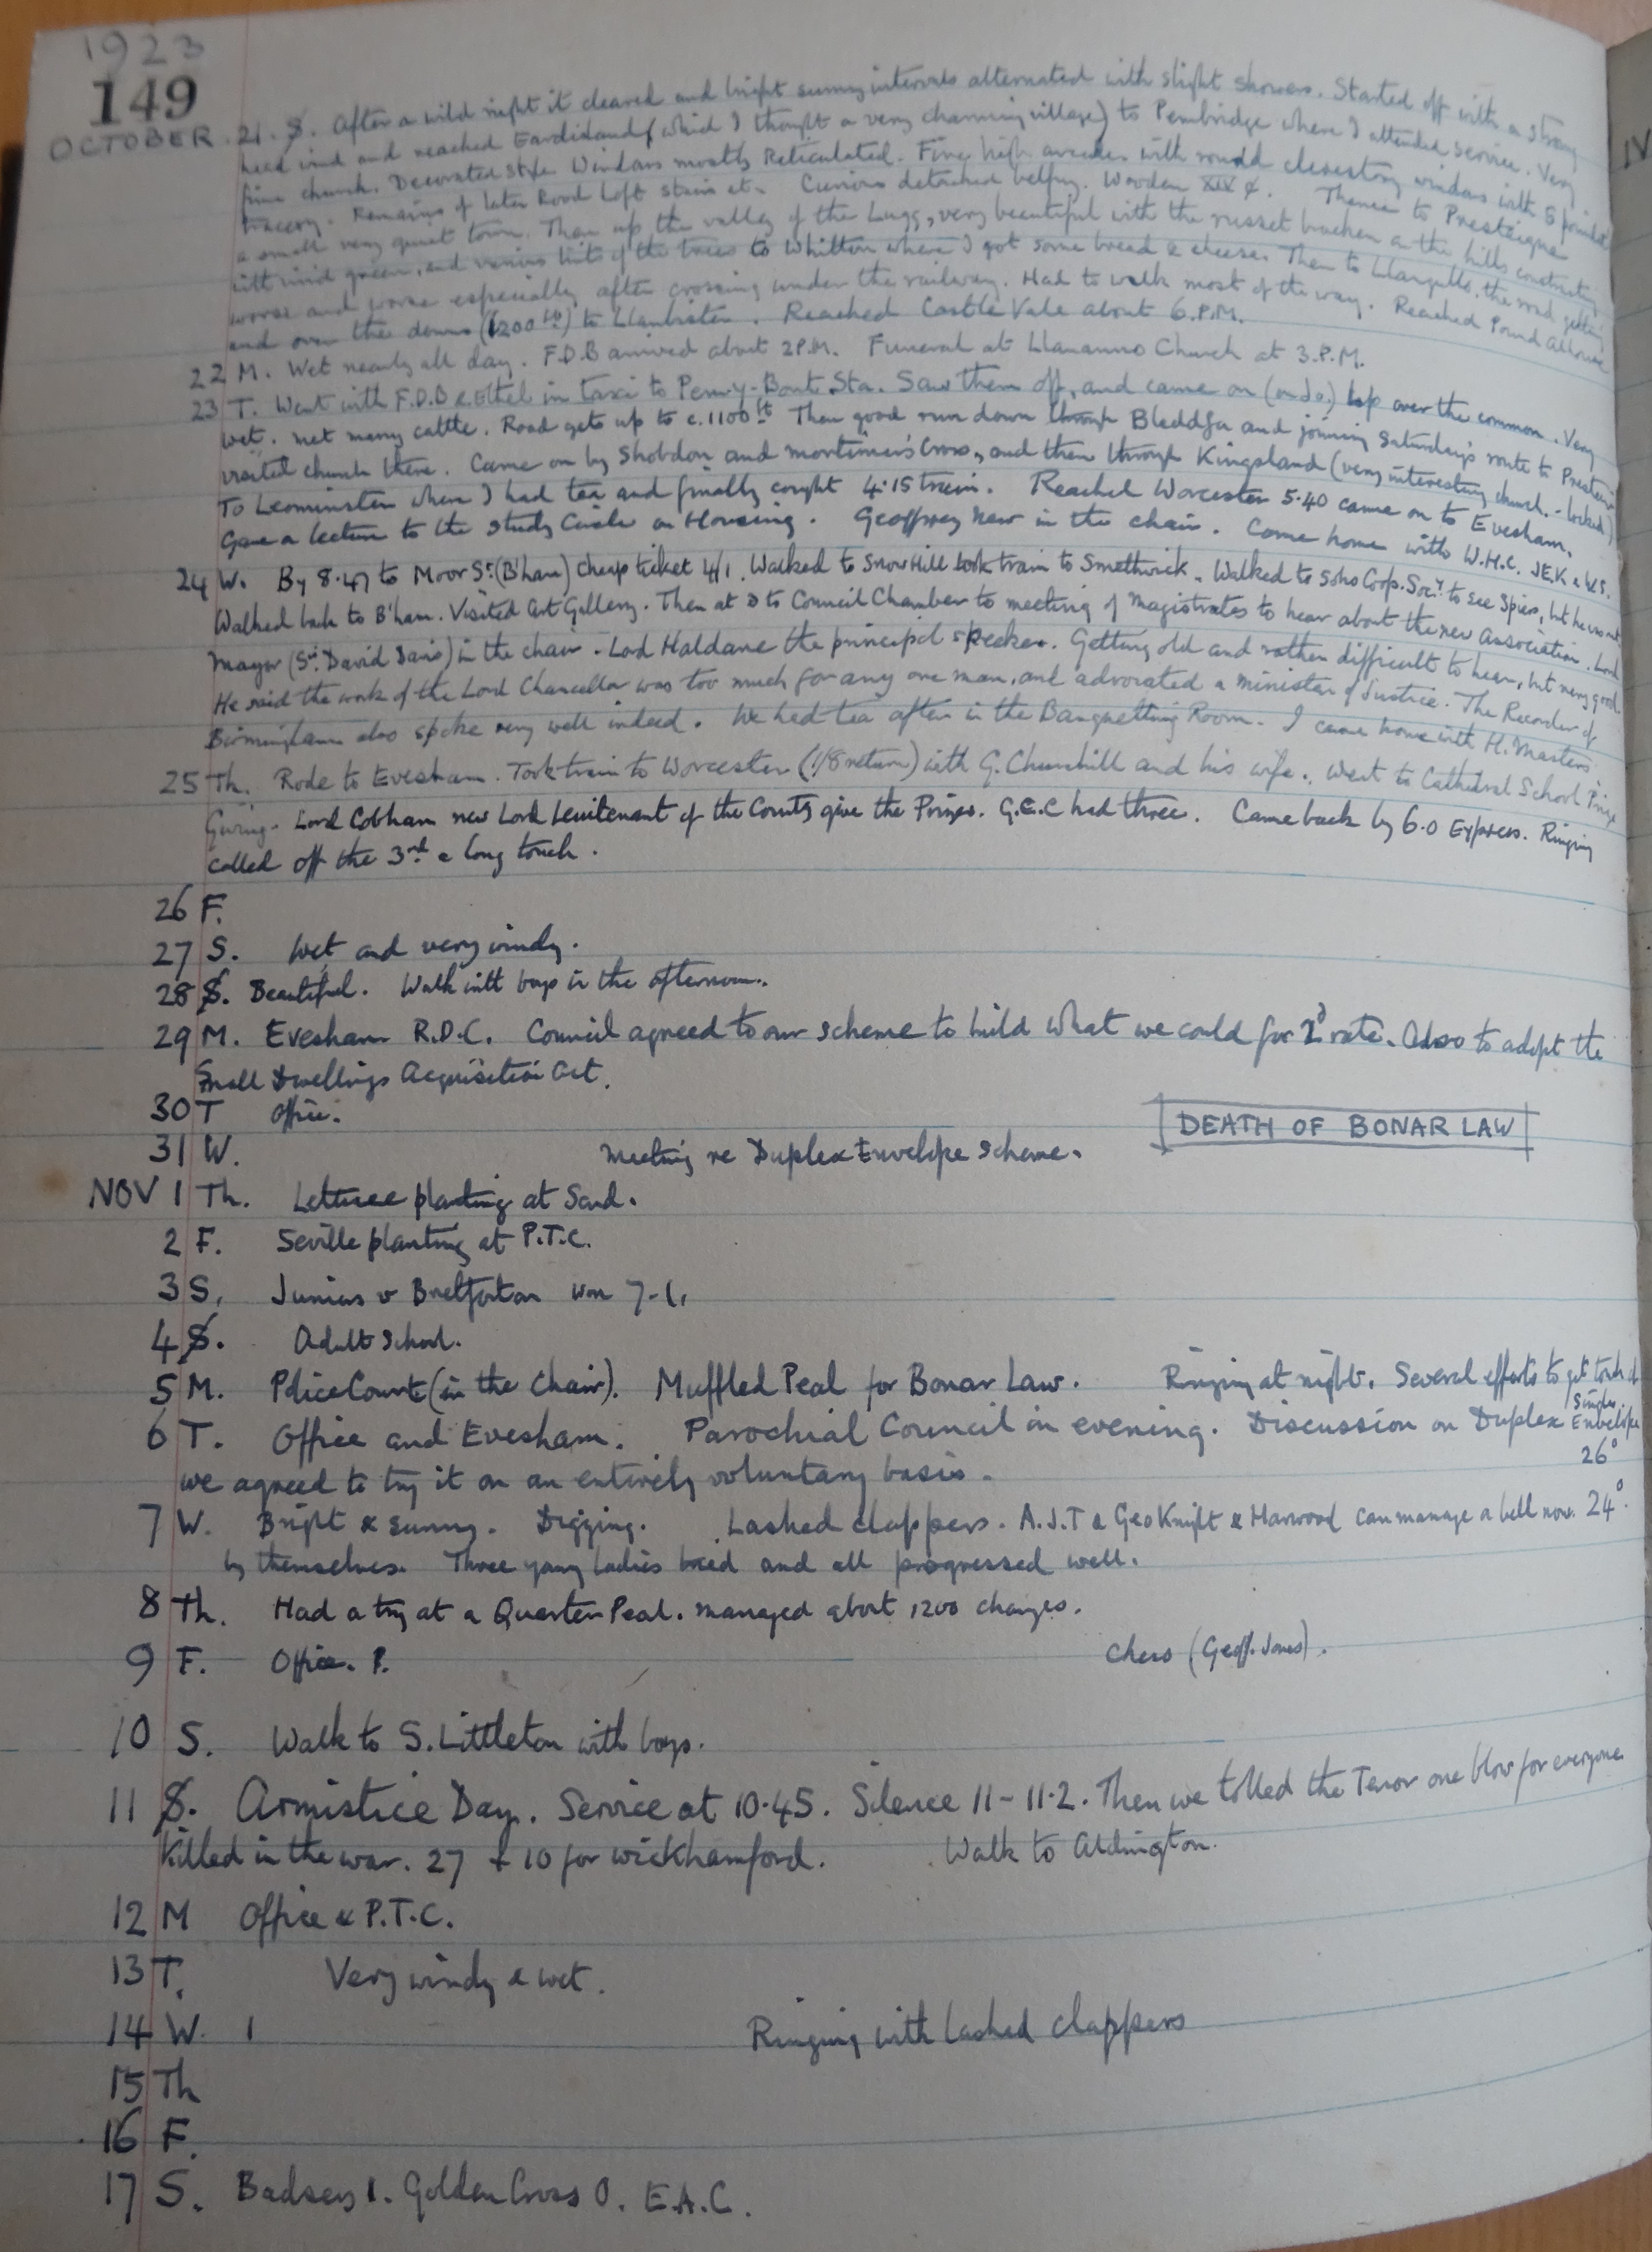 1923
149
OCTOBER. 21. S. After a wild night it cleared and bright sunny intervals alternated with slight showers. Started off with a strong
head wind and reached Eardisland (which I thought a very charming village) to Pembridge where I attended service. Very
fine church. Decorated style Windows mostly Reticulated. Fine high arcades with round clerestory windows with 5 pointed
tracery. Remains of later Rood Loft stairs etc. Curious detached belfry. Wooden XIV c. Thence to Presteigne
a small very quiet town. Then up the valley of the Lugg, very beautiful with the russet bracken on the hills contrasting
with vivid green, and various tints of the trees to Whitton where I got some bread & cheese. Then to Llangullo, the road getting
worse and worse especially after crossing under the railway. Had to walk most of the way. Reached Pound
and over the downs (1200 ft) to Llanbister. Reached Castle Vale about 6.P.M.
22 M. Wet nearly all day. F.D.B arrived about 2P.M. Funeral at Llananno Church at 3.P.M.
23 T. Went with F.D.B & Ethel in taxi to Penny-Bont Sta. Saw them off, and came on (on do.) top over the common. Very
wet. Met many cattle. Road gets up to c.1100 ft Then good run down through Bleddfa and joining Saturday's route to Presteign
visited church there. Came on by Shobdon and Mortimer's Cross, and then through Kingsland (very interesting church. - locked)
To Leominster where I had tea and finally caught 4.15 train. Reached Worcester 5.40 came on to Evesham.
Gave a lecture to the Study Circle on Housing. Geoffrey New in the chair. Came home with W.H.C. J.E.K & W.S.
24 W. By 8.47 to Moor St. (B'ham) cheap ticket 4/1. Walked to Snow Hill took train to Smethwick. Walked to Soho Coop. Socy. to see Spiers, but he was out
Walked back to B'ham. Visited Art Gallery. Then at 3 to Council Chamber to meeting of Magistrates to hear about the new Association. Lord
Mayor (Sir David Davis) in the chair. Lord Haldane the principal speaker. Getting old and rather difficult to hear, but very good
He said the work of the Lord Chancellor was too much for any one man, and advocated a Minister of Justice. The Recorder of
Birmingham also spoke very well indeed. We had tea after in the Banquetting Room. I came home with H. Masters
25 Th. Rode to Evesham. Took train to Worcester (1/8 return) with G. Churchill and his wife. Went to Cathedral School Prize
Giving. Lord Cobham new Lord Leuitenant of the County give the Prizes. G.E.C had three. Came back by 6.0 Express. Ringing
called off the 3rd a long touch.
26 F.
27 S. Wet and very windy.
28 S. Beautiful. Walk with boys in the afternoon.
29 M. Evesham R.D.C. Council agreed to our scheme to build what we could for 1d rate. Also to adopt the
Small Dwellings Acquisition Act.
30 T Office. DEATH OF BONAR LAW
31 W. Meeting re Duplex Envelope Scheme.
NOV 1 Th. Lettuce planting at Sand.
2 F. Seville planting at P.T.C.
3 S. Juniors v Bretforton won 7-1.
4 S. Adult School.
5 M. Police Court (in the Chair). Muffled Peal for Bonar Law. Ringing at night. Several efforts to get touch of
Singles.
6 T. Office and Evesham. Parochial Council in evening. Discussion on Duplex Envelope
we agreed to try it on an entirely voluntary basis. 26°
7 W. Bright & Sunny. Digging. Lashed clappers. A.J.T & Geo Knight & Harwood can manage a bell now. 24°.
by themselves. Three young ladies tried and all progressed well.
8 Th. Had a try at a Quarter Peal. Managed about 1200 changes.
9 F. Office. P. Chess (Geoff. Jones).
10 S. Walk to S. Littleton with boys.
11 S. Armistice Day. Service at 10.45. Silence 11 - 11.2. Then we tolled the Tenor one blow for everyone
Killed in the war. 27 + 10 for Wickhamford. Walk to Aldington.
12 M Office & P.T.C.
13 T. Very windy & wet.
14 W. 1 Ringing with lashed clappers
15 Th
16 F.
17 S. Badsey 1. Golden Cross 0. E.A.C.